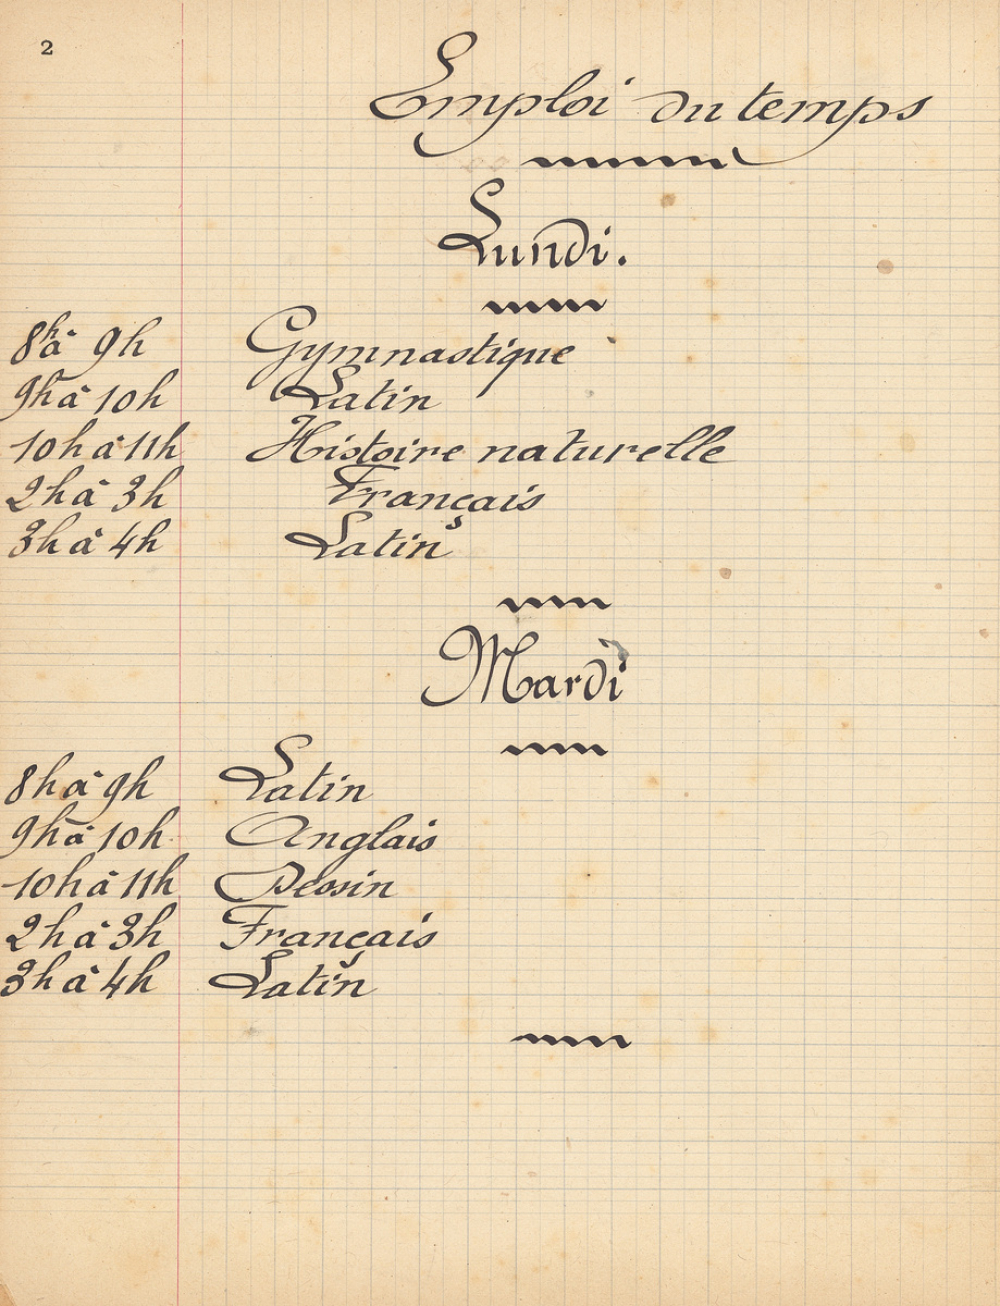 2
Emploi du temps
Lundi.
8h à 9h Gymnastique
9h à 10h Latin
10h à 11h Histoire naturelle
2h à 3h Français
3h à 4h Latin
Mardi
8h à 9h Latin
9h à 10h Anglais
10h à 11h Dessin
2h à 3h Français
3h à 4h Latin